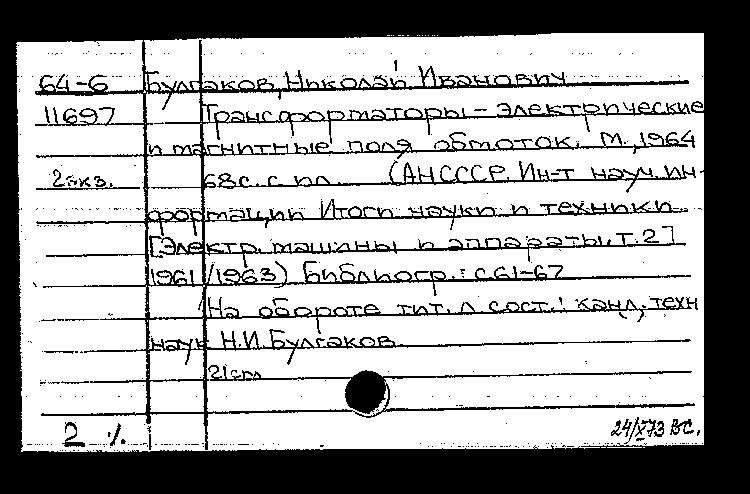 64-6 Булгаков, Николай Иванович
11697 Трансформаторы – электрические
и магнитные поля обмоток. М., 1964
2 экз. 68 с. с ил. (АН СССР. Ин-т науч. ин-
формации Итоги науки и техники
[Электр. машины и аппараты. Т. 2]
1961/1963) Библиогр.: с 61-67
На обороте тит. л сост.: канд. техн
наук Н.И. Булгаков.
2 24/X73 ВС.